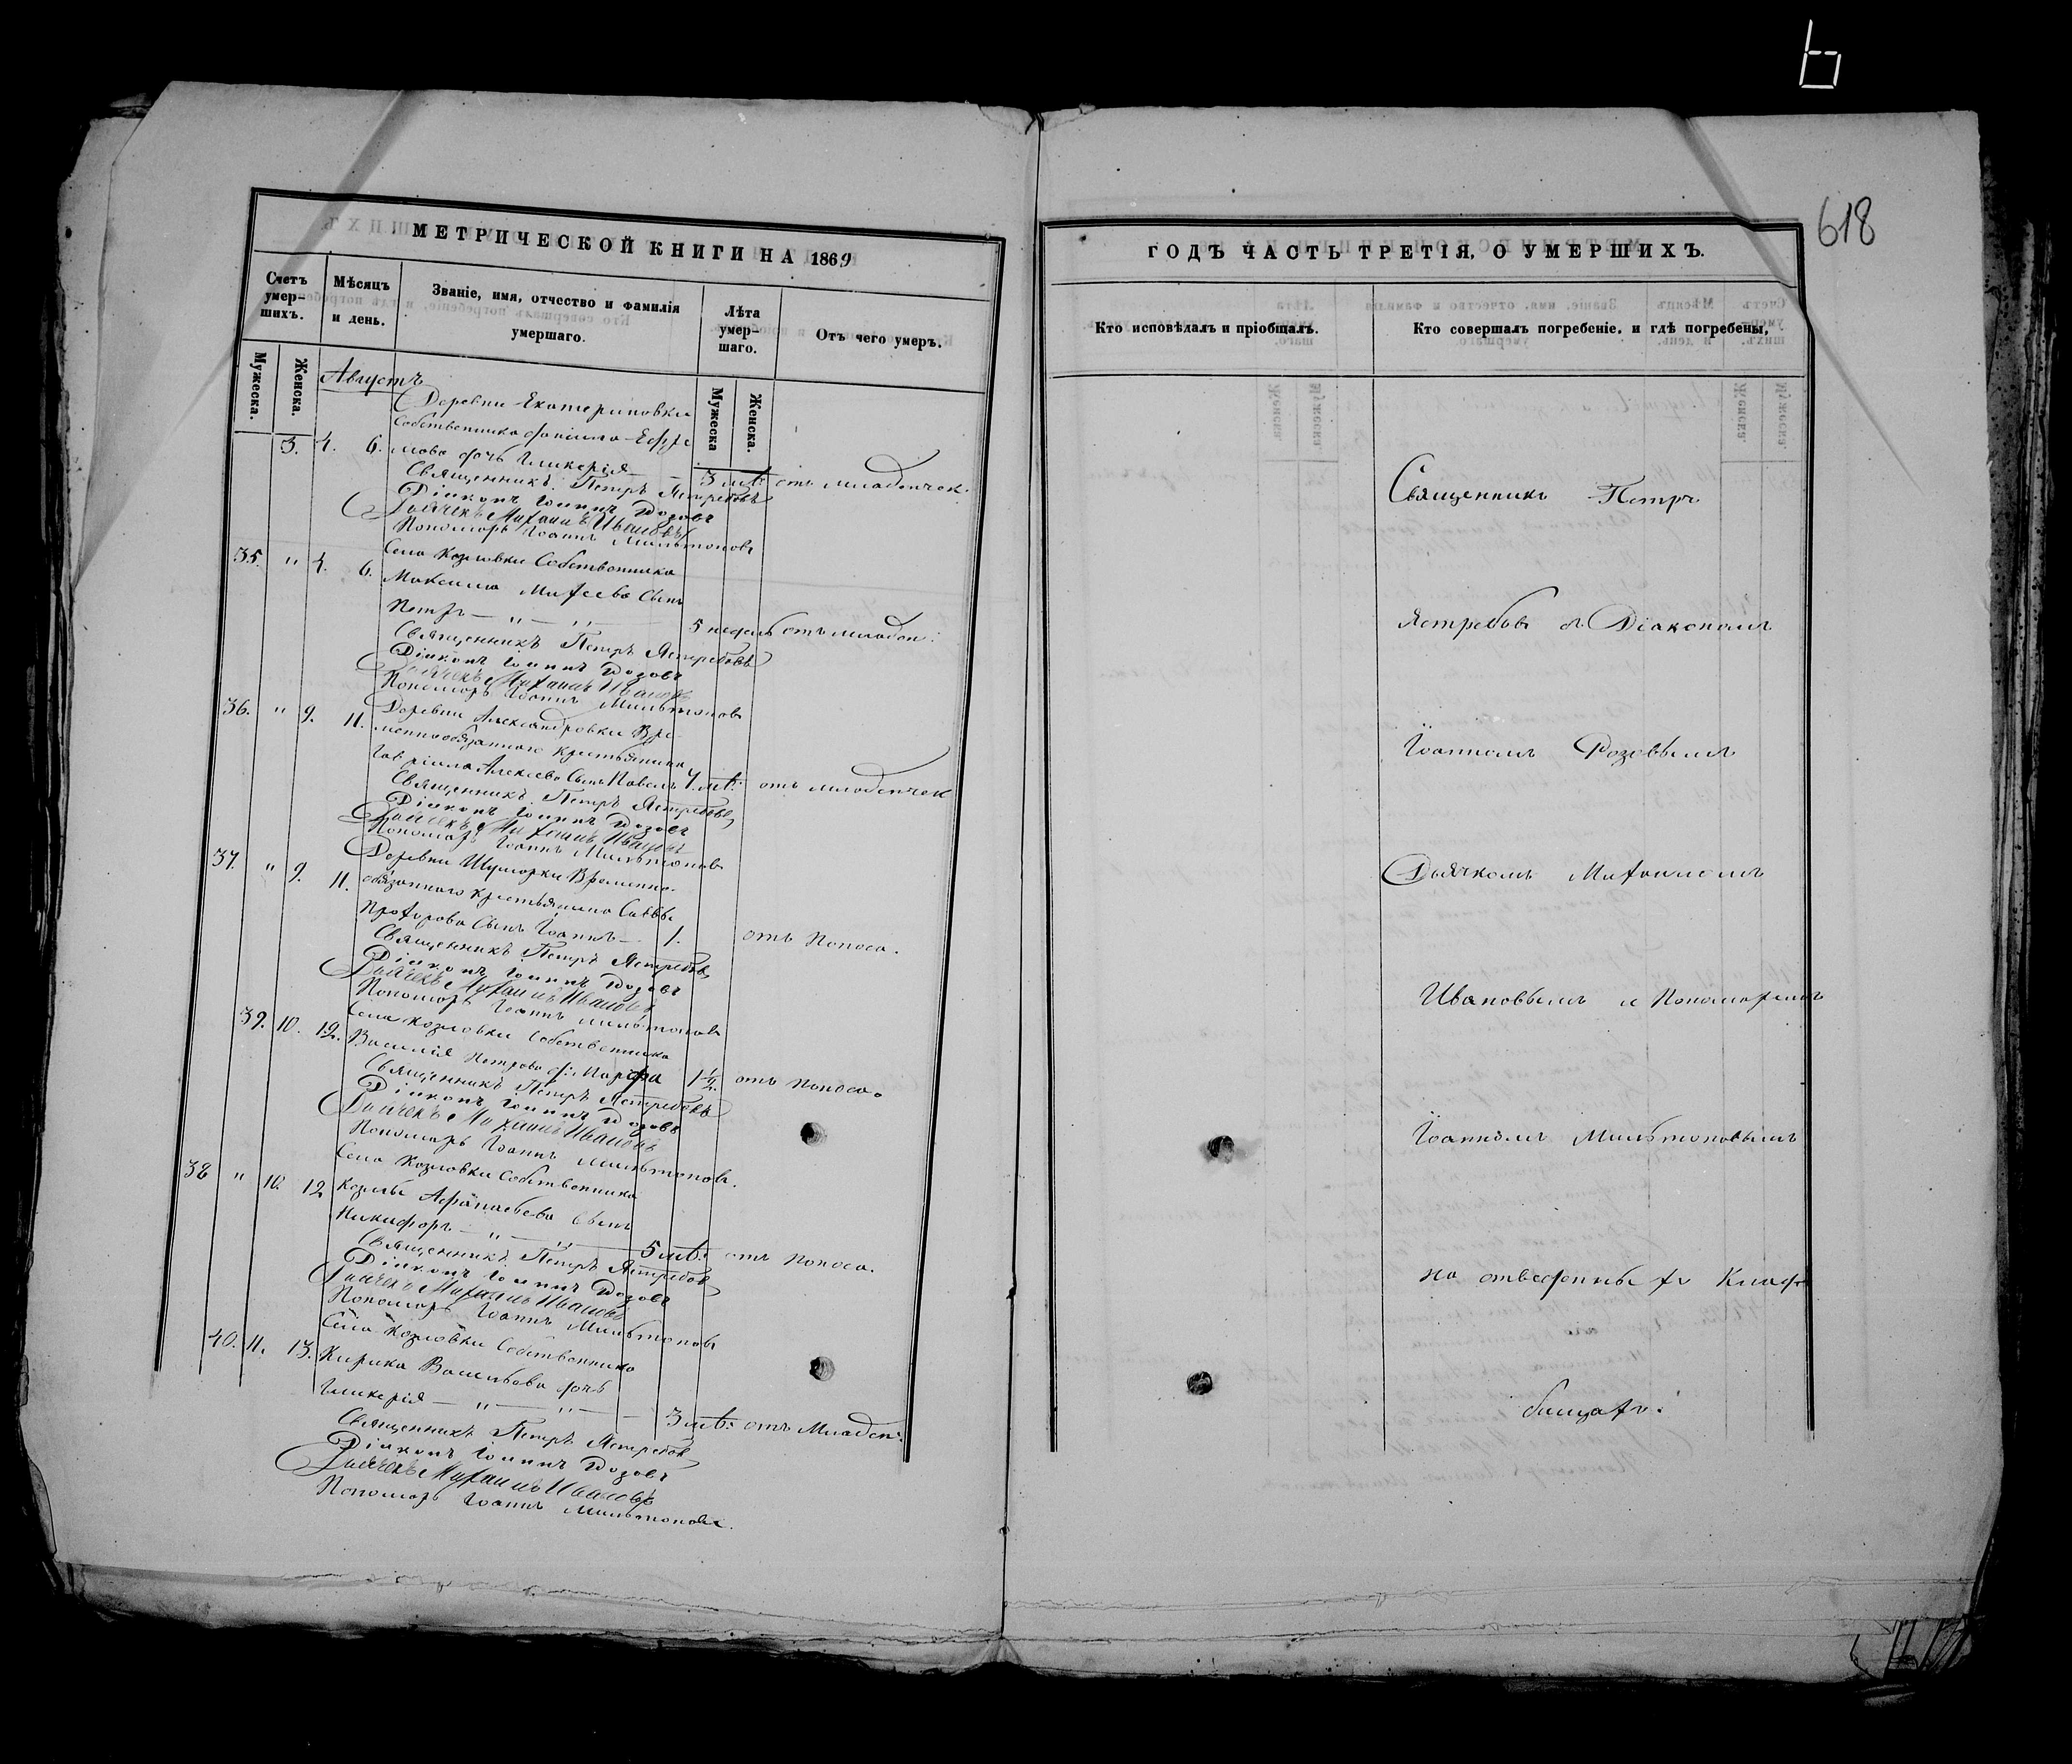 618
МЕТРИЧЕСКОЙ КНИГИ НА 1869
Счетъ умер-шихъ.
Мѣсяцъ и день.
Званіе, имя, отчество и фамилія умершаго.
Лѣта умер-шаго.
Отъ чего умеръ.
Мужеска.
Женска.
Мужеска
Женска.
Августъ
Деревни Екатериновки
Собственника
3. 4. 6. мова дочь Гликерія — 3 лѣт: отъ младенчек:
Священникъ Петръ Ястребовъ
Діаконъ Іоаннъ Розовъ
Дьячекъ Михаилъ Ивановъ
Пономарь Іоаннъ Мильтоновъ
Села Козловки Собственника
35. " 4. 6. Максима Михеева сынъ
Петръ — " — " — 5 недель отъ младен:
Священникъ Петръ Ястребовъ
Діаконъ Іоаннъ Розовъ
Дьячекъ Михаилъ Ивановъ
Пономарь Іоаннъ Мильтоновъ
36. " 9. 11. Деревни Александровки Вре-
меннообязаннаго крестьянина
Гавріила Алексеева сынъ Павелъ лѣт: отъ младенчек
Священникъ Петръ Ястребовъ
Діаконъ Іоаннъ Розовъ
Дьячекъ Михаилъ Ивановъ
Пономарь Іоаннъ Мильтоновъ
37. " 9. 11. Деревни Временно-
обязаннаго крестьянина Саввы
Прохорова сынъ Іоаннъ — 1. отъ поноса.
Священникъ Петръ Ястребовъ
Діаконъ Іоаннъ Розовъ
Дьячекъ Михаилъ Ивановъ
Пономарь Іоаннъ Мильтоновъ
Села Козловки Собственника
39. 10. 12. Василія Петрова д: Марфа 1½ отъ поноса.
Священникъ Петръ Ястребовъ
Діаконъ Іоаннъ Розовъ
Дьячекъ Михаилъ Ивановъ
Пономарь Іоаннъ Мильтоновъ.
Села Козловки Собственника
38 " 10. 12 Козьмы сынъ
Никифоръ — " — " — 5 лѣт: отъ поноса.
Священникъ Петръ Ястребовъ
Діаконъ Іоаннъ Розовъ
Дьячекъ Михаилъ Ивановъ
Пономарь Іоаннъ Мильтоновъ
Села Козловки Собственника
40. 11. 13. Кирика Васильева дочь
Гликерія — " — " — 3 лѣт: отъ Младен:
Священникъ Петръ Ястребовъ
Діаконъ Іоаннъ Розовъ
Дьячекъ Михаилъ Ивановъ
Пономарь Іоаннъ Мильтоновъ.
ГОДЪ ЧАСТЬ ТРЕТІЯ, О УМЕРШИХЪ.
Кто исповѣдалъ и пріобщалъ.
Кто совершалъ погребеніе, и гдѣ погребены,
Священникъ Петръ
Ястребовъ съ Діакономъ
Іоанномъ Розовымъ
Дьячкомъ Михаиломъ
Ивановымъ и Пономаремъ
Іоанномъ Мильтоновымъ
на отведенныхъ Клад-
бищахъ: